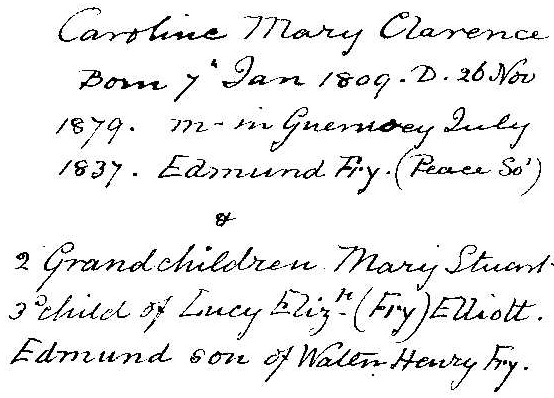 Caroline Mary Clarence
Born 7th Jan 1809. D. 26 Nov
1879. m- in Guernsey July
1837. Edmund Fry. (Peace So')
&
2 Grandchildren Mary Stuart
3d child of Lucy Elizth (Fry) Elliott.
Edmund son of Walter Henry Fry.